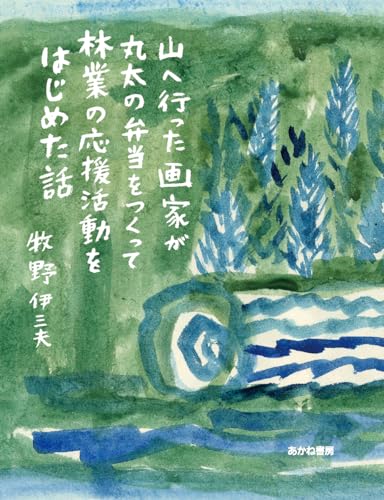 山へ行った画家が
丸太の弁当をつくって
林業の応援活動を
はじめた話
牧野伊三夫
あかね書房